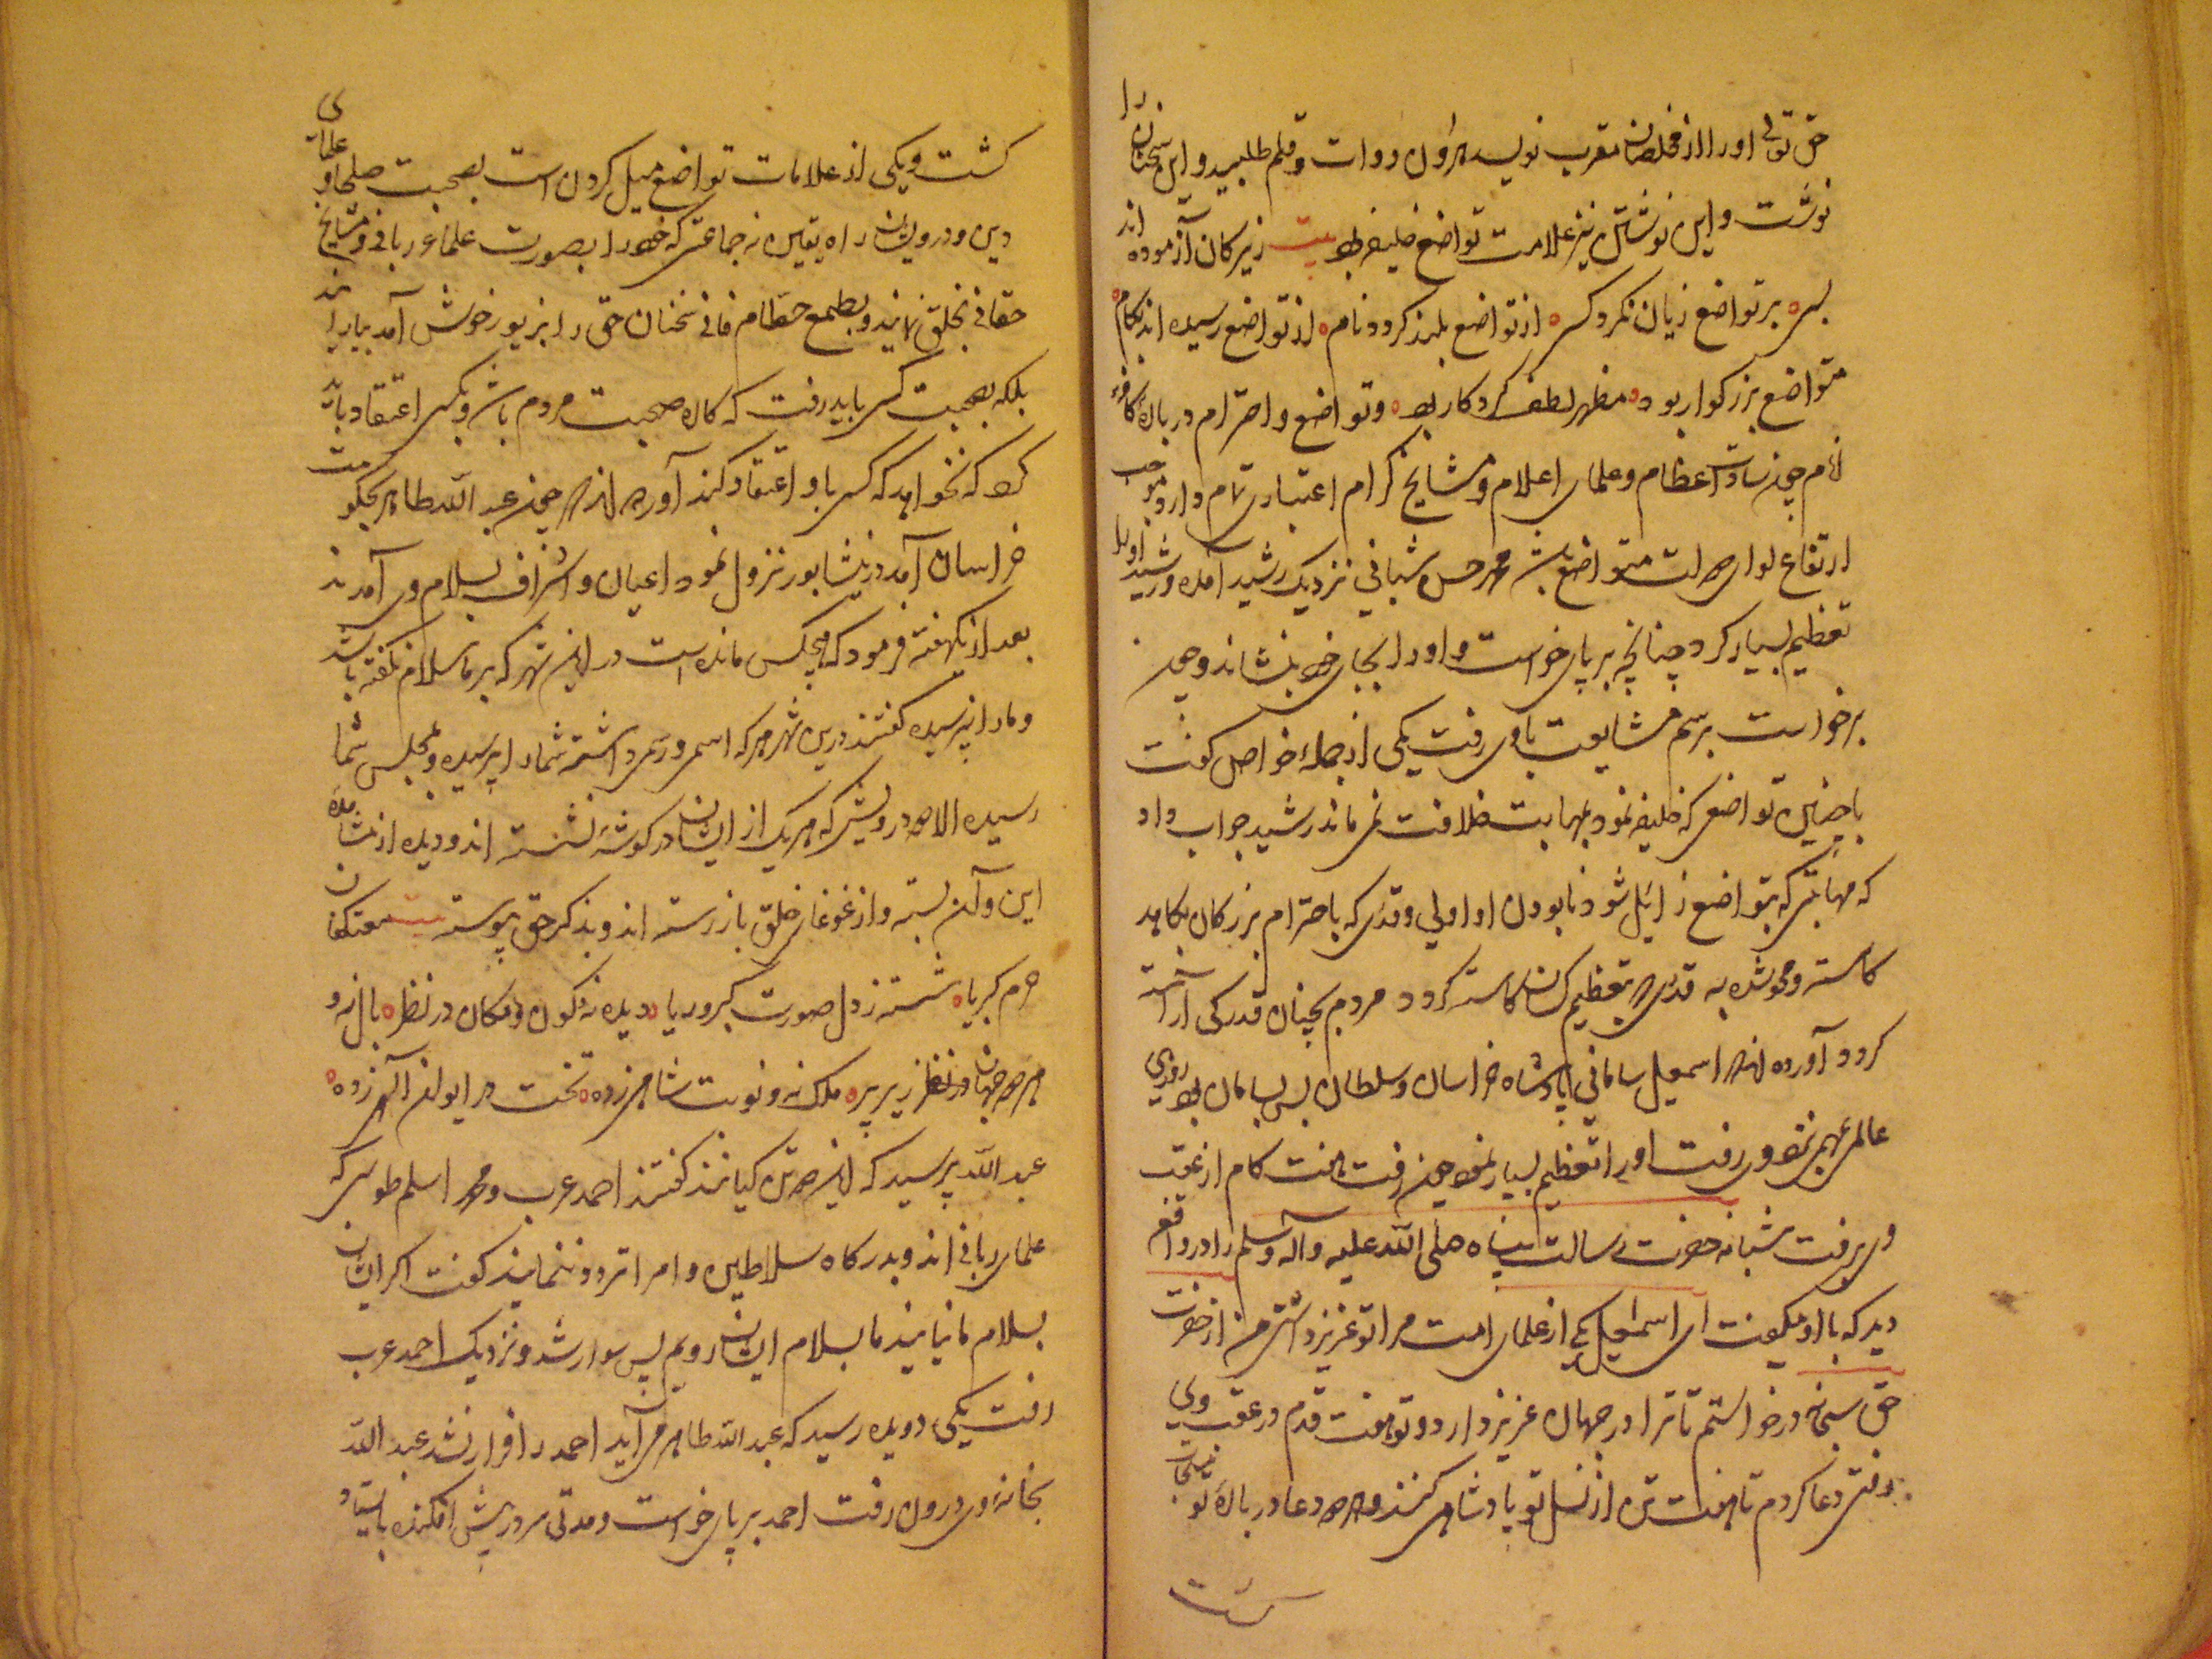 حق تعالی او را از مخلصان مقرب نویسد هارون دوات و قلم طلبید و این سخنان را
نوشت و این نوشتن نیز علامت تواضع خلیفه بود بیت زیرکان آزموده اند
بسی بر تواضع زیان نکرد کسی از تواضع بلند کردد نام از تواضع رسیده اند بکام
متواضع بزرکوار بود مظهر لطف کردکار بود و تواضع و احترام در باره کافهٔ
انام چون سادات عظام و علمای اعلام و مشایخ کرام اعتباری تمام دارد و موجب
ارتفاع لوای دولت متواضع باشد محمد حسن شیبانی نزدیک رشید آمد و رشید او را
تعظیم بسیار کرد چنانچه بر پای خواست و او را بجای خود بنشاند و چون
برخواست برسم مشایعت با وی رفت یکی از جمله خواص کفت
با چنین تواضعی که خلیفه نمود مهابت خلافت نمی ماند رشید جواب داد
که مهابتی که بتواضع زایل شود نابودن او اولی و قدری که باحترام بزرکان بکاهد
کاسته و محو شده به قدری که بتعظیم کسان کاسته کردد مردم بچنان قدر کی آراسته
کردد آورده اند که اسمعیل سامانی پادشاه خراسان و سلطان بس بسامان بود روزی
عالمی بمهمی نزد وی رفت او را تعظیم بسیار نمود چون رفت هفت کام از عقب
وی برفت شبانه حضرت رسالت پناه صلی الله علیه و آله و سلم را در واقعه
دید که با او میکفت ای اسمعیل یکی از علمای امت مرا تو عزیز داشتی من از حضرت
حق سبحانه درخواستم تا ترا در جهان عزیز دارد و تو هفت قدم در عقب وی
رفتی دعا کردم تا هفت تن از نسل تو پادشاهی کنند و هر دو دعا در باره تو مستجاب
کشت
کشت و یکی از علامات تواضع میل کردن است بصحبت صلحا و علمای
دین و درویشان راه یقین نه جماعتی که خود را بصورت علماء ربانی و مشایخ
حقانی بخلق نمایند و بطمع حطام فانی سخنان حق را بزیور خوش آمد بیارایند
بلکه بصحبت کسی باید رفت که کاره صحبت مردم باشد و بکسی اعتقاد باید
کرد که نخواهد که کسی باو اعتقاد کند آورده اند که چون عبد الله طاهر بحکومت
خراسان آمد در نیشابور نزول نمود اعیان و اشراف بسلام وی آمدند
بعد از یکهفته فرمود که هیچکس مانده است در این شهر که بر ما سلام نکفته باشد
و ما را نپرسیده کفتند درین شهر هر که اسمی و رسمی داشته شما را پرسیده و بمجلس شما
رسیده الا دو درویش که هر یک از ایشان در کوشهٔ نشسته اند و دیده از مشاهده
این و آن بسته و از غوغای خلق باز رسته اند و بذکر حق پیوسته بیت معتکفان
حرم کبریا شسته ز دل صورت کبر و ریا دیده نه کون و مکان در نظر بال نه و
هر دو جهان زیر پر ملک نه و نوبت شاهی زده تخت در ایوان الهی زده
عبد الله پرسید که این دو تن کیانند کفتند احمد عرب و محمد اسلم طوسی که
علمای ربانی اند و بدرکاه سلاطین و امرا تردد ننمایند کفت اکر ایشان
بسلام ما نیایند ما بسلام ایشان رویم پس سوار شد و نزدیک احمد عرب
رفت یکی دویده رسید که عبد الله طاهر می آید احمد را فرار نشد عبد الله
بخانه وی درون رفت احمد بر پای خواست و مدتی سر در پیش افکنده بایستاد